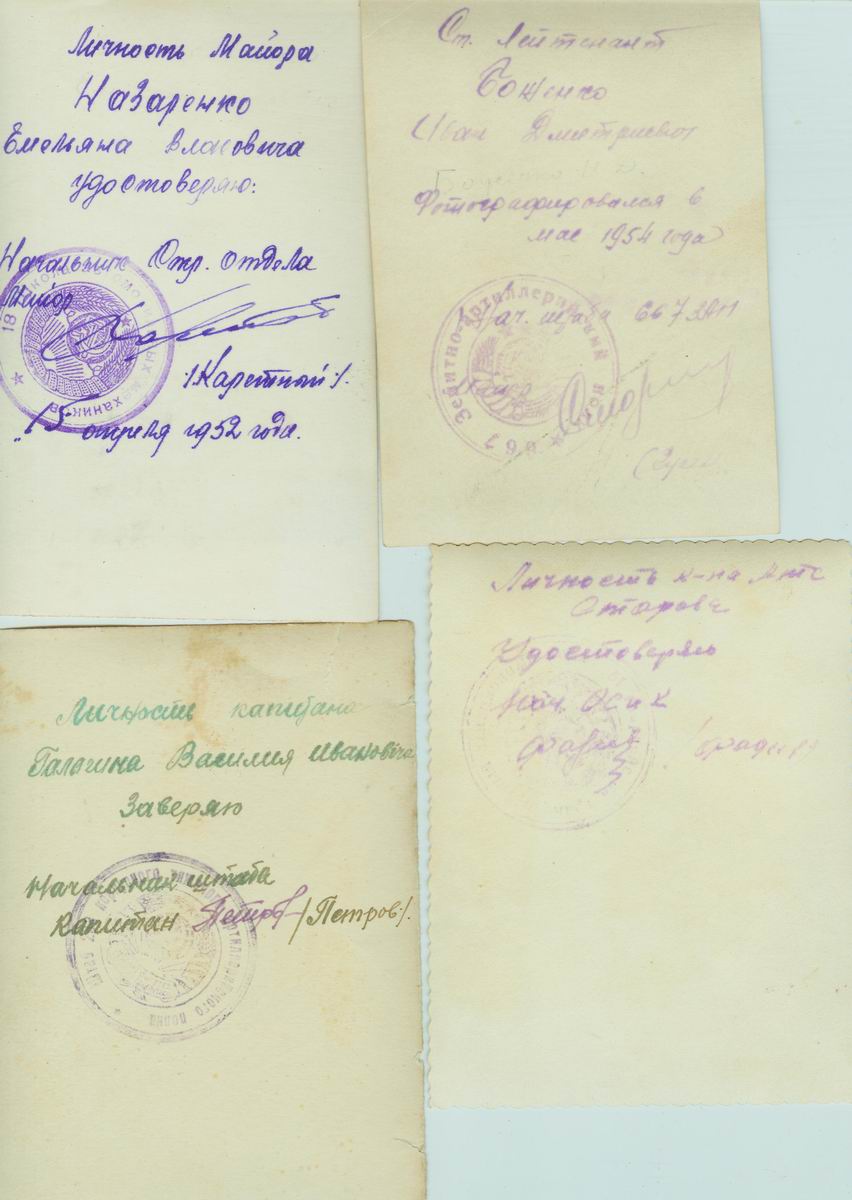 Личность Майора
Назаренко
Емельяна Власовича
удостоверяю:
Начальник Стр. отдела
Майор
/Каретный/.
"15" апреля 1952 года.
Ст. Лейтенант
Боженко
Иван Дмитриевич
Фотографировался в
мае 1954 года
Нач. штаба 667 ЗАП
Зенитно-Артиллерийский полк
667
Личность капитана
Галагина Василия Ивановича
Заверяю
Начальник штаба
Капитан Петров /Петров/.
артиллерийского полка
Личность к-на
Удостоверяю
Нач.